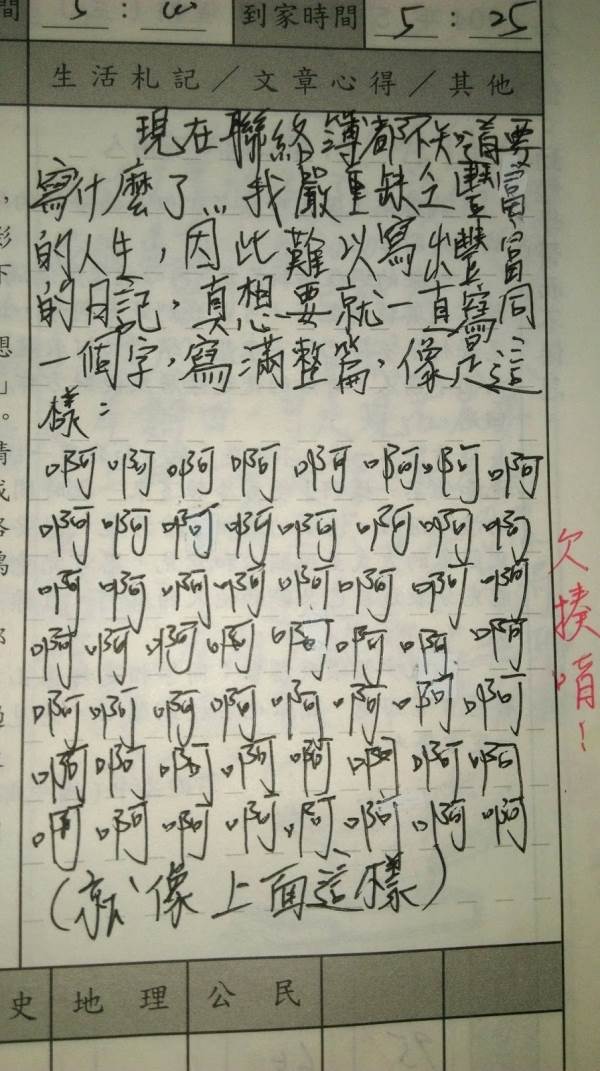 間 5:
到家時間 5:25
生活札記／文章心得／其他
現在聯絡簿都不知道要
寫什麼了…我嚴重缺乏豐富
的人生，因此難以寫出豐富
的日記，真想要就一直寫同
一個字，寫滿整篇，像是這
樣：
啊啊啊啊啊啊啊啊
啊啊啊啊啊啊啊啊
啊啊啊啊啊啊啊啊
啊啊啊啊啊啊啊啊
啊啊啊啊啊啊啊啊
啊啊啊啊啊啊啊啊
啊啊啊啊啊啊啊啊
（就像上面這樣）
欠揍唷！
史 地理 公民